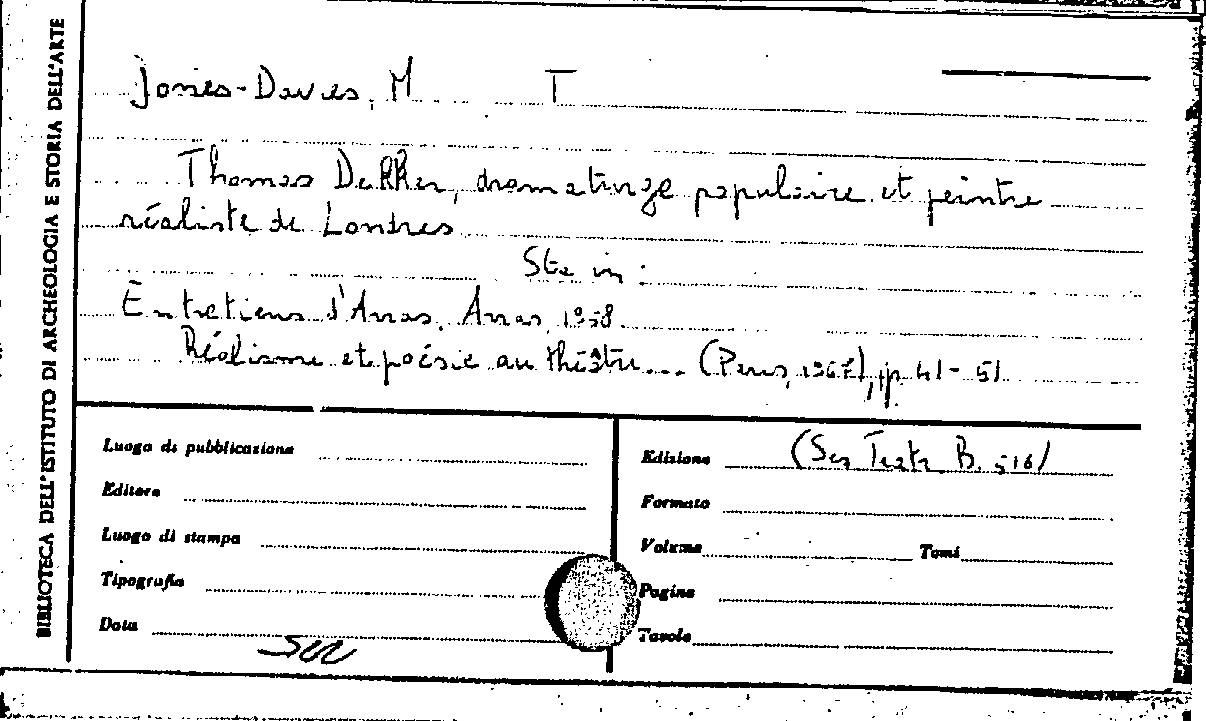 BIBLIOTECA DELL'ISTITUTO DI ARCHEOLOGIA E STORIA DELL'ARTE
Jones-Davies, M T
Thomas Dekker, dramaturge populaire et peintre
réaliste de Londres
Sta in:
Entretiens d'Arras, Arras 1958
Réalisme et poésie au théâtre... (Paris, 1967), p. 41-51
Luogo di pubblicazione
Editore
Luogo di stampa
Tipografia
Data
Edizione (Ses Teatr. B. 516)
Formato
Volume Tomi
Pagine
Tavole